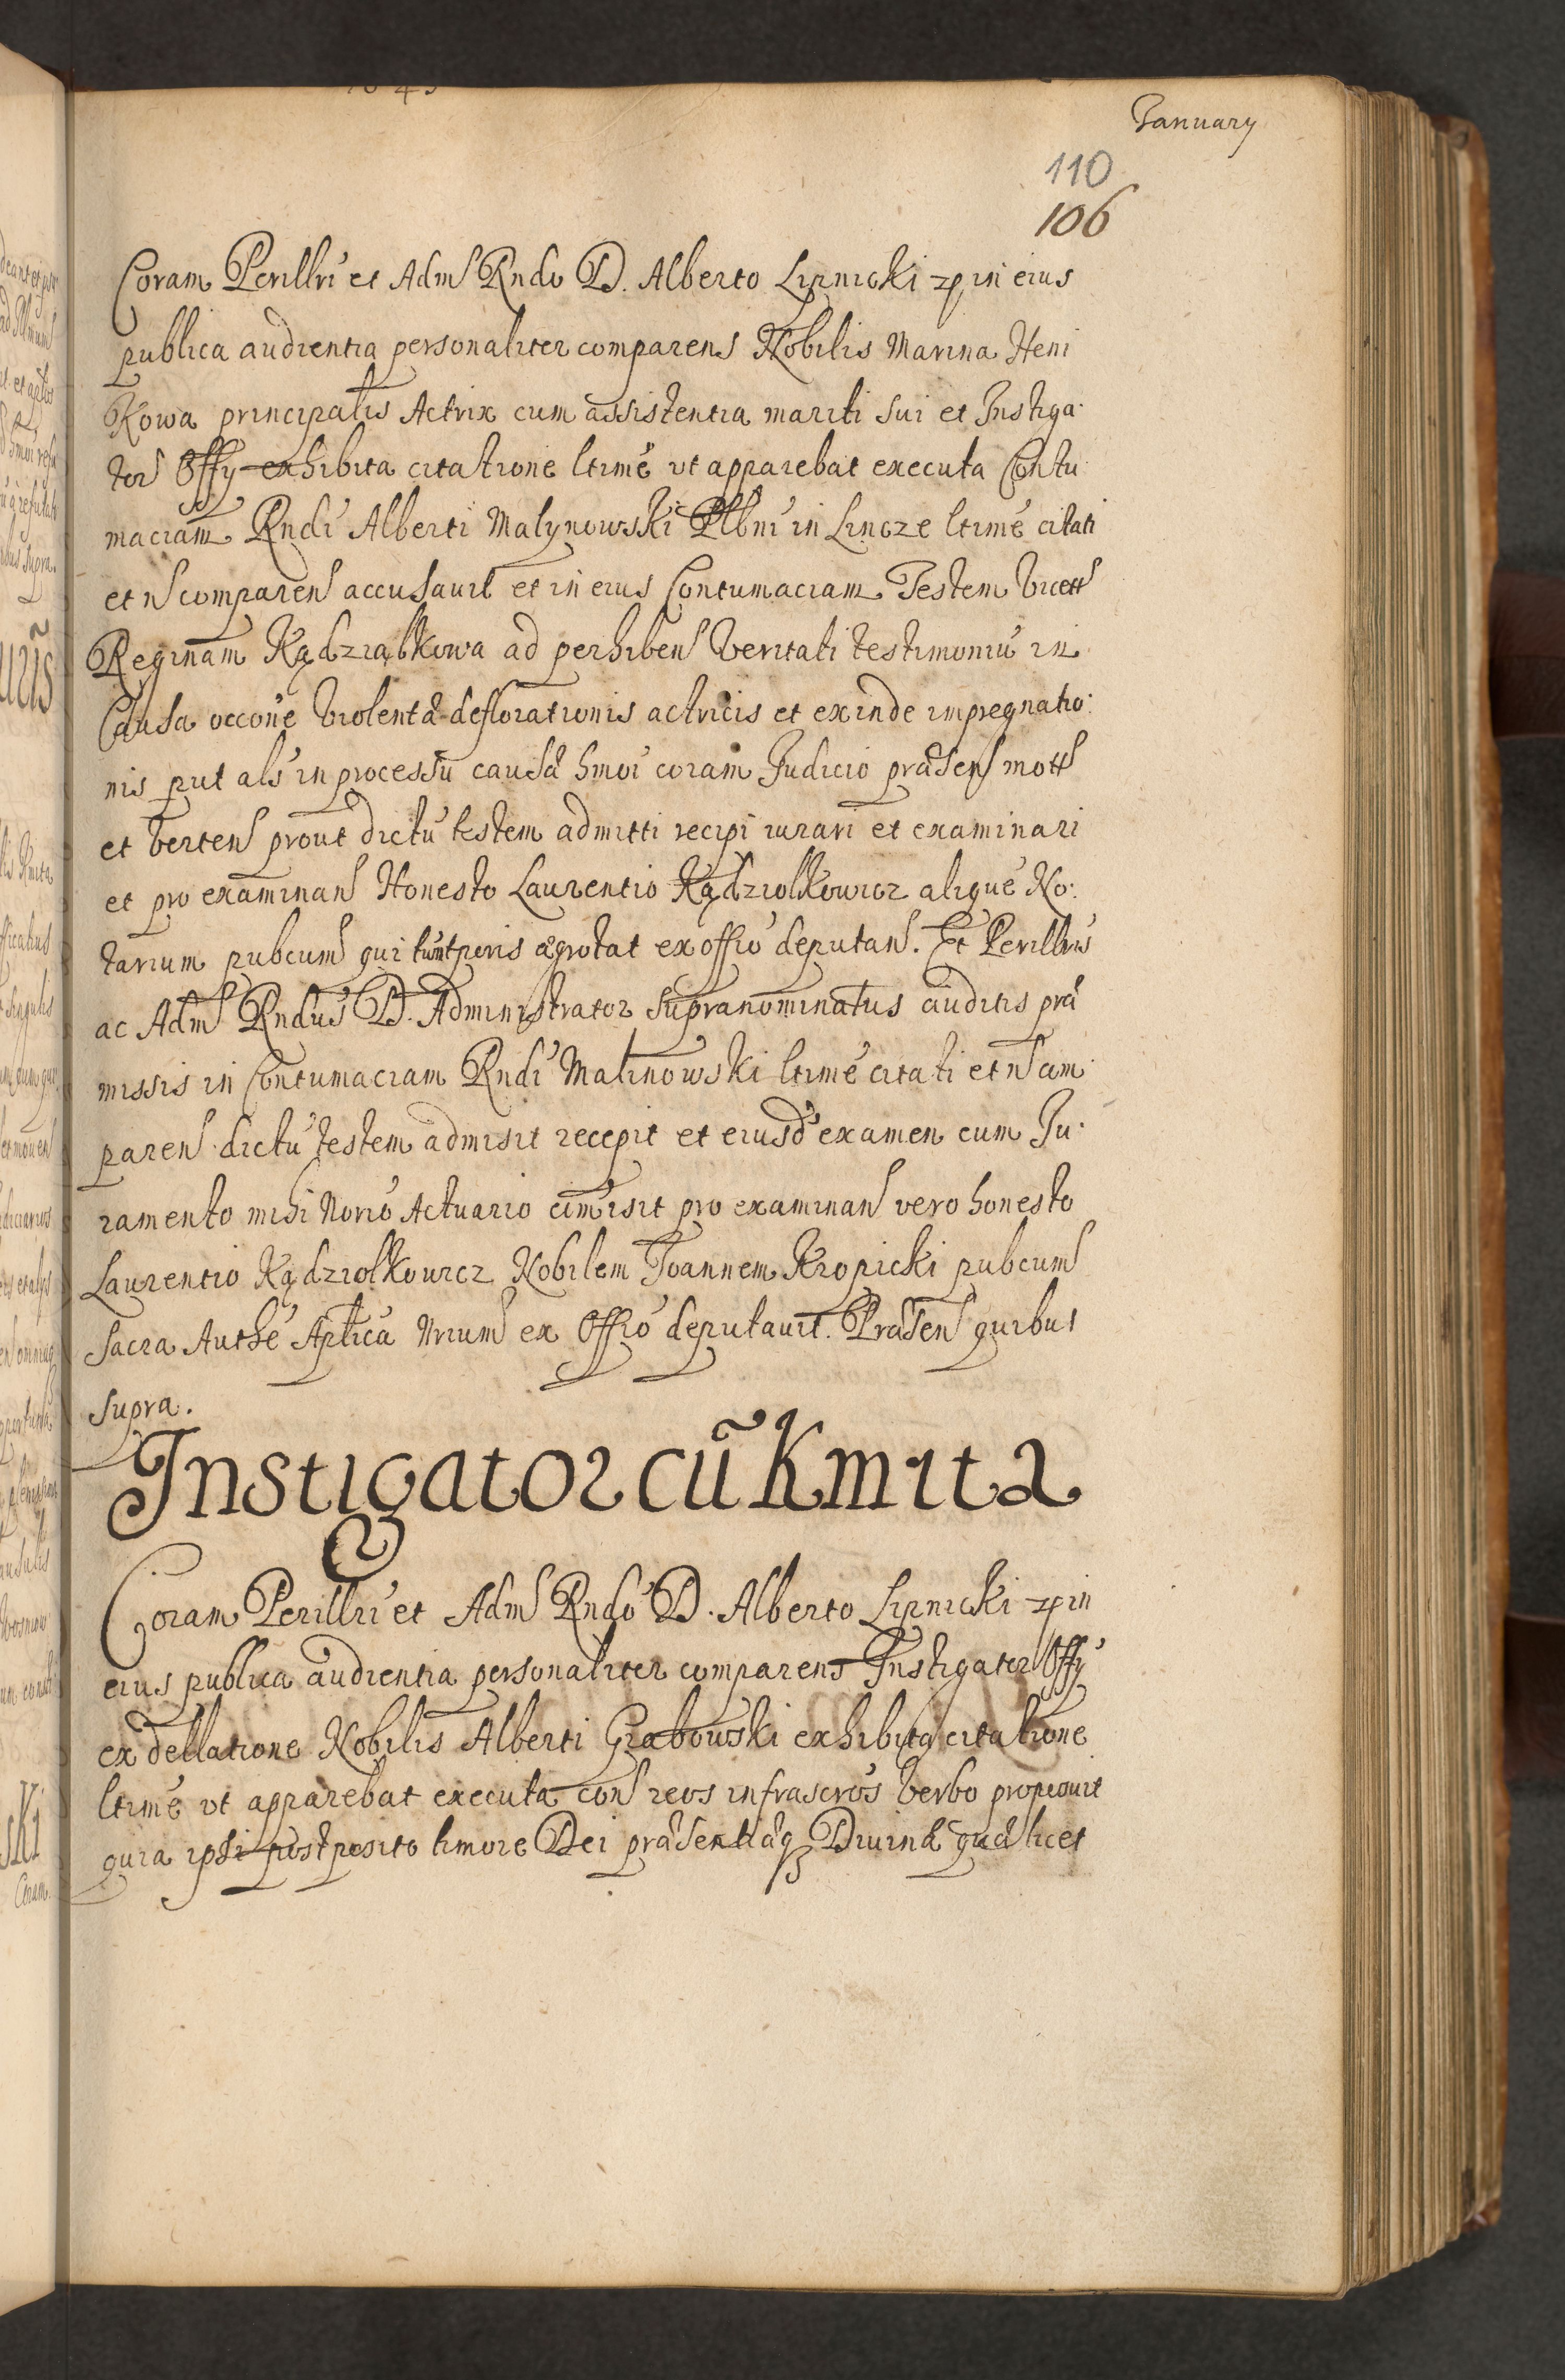 January
110
106
Coram Perillri et Adm Rndo D. Alberto Lipnicki zp in eius
publica audientia personaliter comparens Nobilis Marina Heni
Kowa principalis Actrix cum assistentia mariti sui et Instiga
tor Offy exhibita citatione ltimé ut apparebat executa Contu
maciam Rndi Alberti Malynowski Plbni in Lincze ltimé citati
et n comparen accusavit et in eius Contumaciam Testem
Reginam Kądziąłkowa ad perhiben veritati testimoniu in
Causa occone violentæ deflorationis actricis et exinde impregnatio
nis put als in processu causæ hmoi coram Judicio præsen mott
et verten prout dictu testem admitti recipi iurari et examinari
et pro examinan Honesto Laurentio Kądziolkowicz aliqué No:
tarium pubcum qui ægrotat ex offio deputan. Et Perillris
ac Adm Rndus D. Administrator supranominatus auditis præ
missis in Contumaciam Rndi Malinowski ltimé citati et n com
paren dictu testem admisit recepit et eiusd examen cum Ju
ramento mihi Norio Actuario comisit pro examinan vero honesto
Laurentio Kądziolkowicz Nobilem Joannem Kropicki pubcum
Sacra Authe Aplica Nrium ex Offio deputavit. Præsen quibus
supra.
Instigator cũ Kmita
Coram Perillri et Adm Rndo D. Alberto Lipnicki zp in
eius publica audientia personaliter comparens Instigator Offy
ex dellatione Nobilis Alberti Grabowski exhibita citatione
ltimé ut apparebat executa con reos infrascros verbo proposuit
quia ipsi postposito timore Dei præsentiáq Divinæ licet